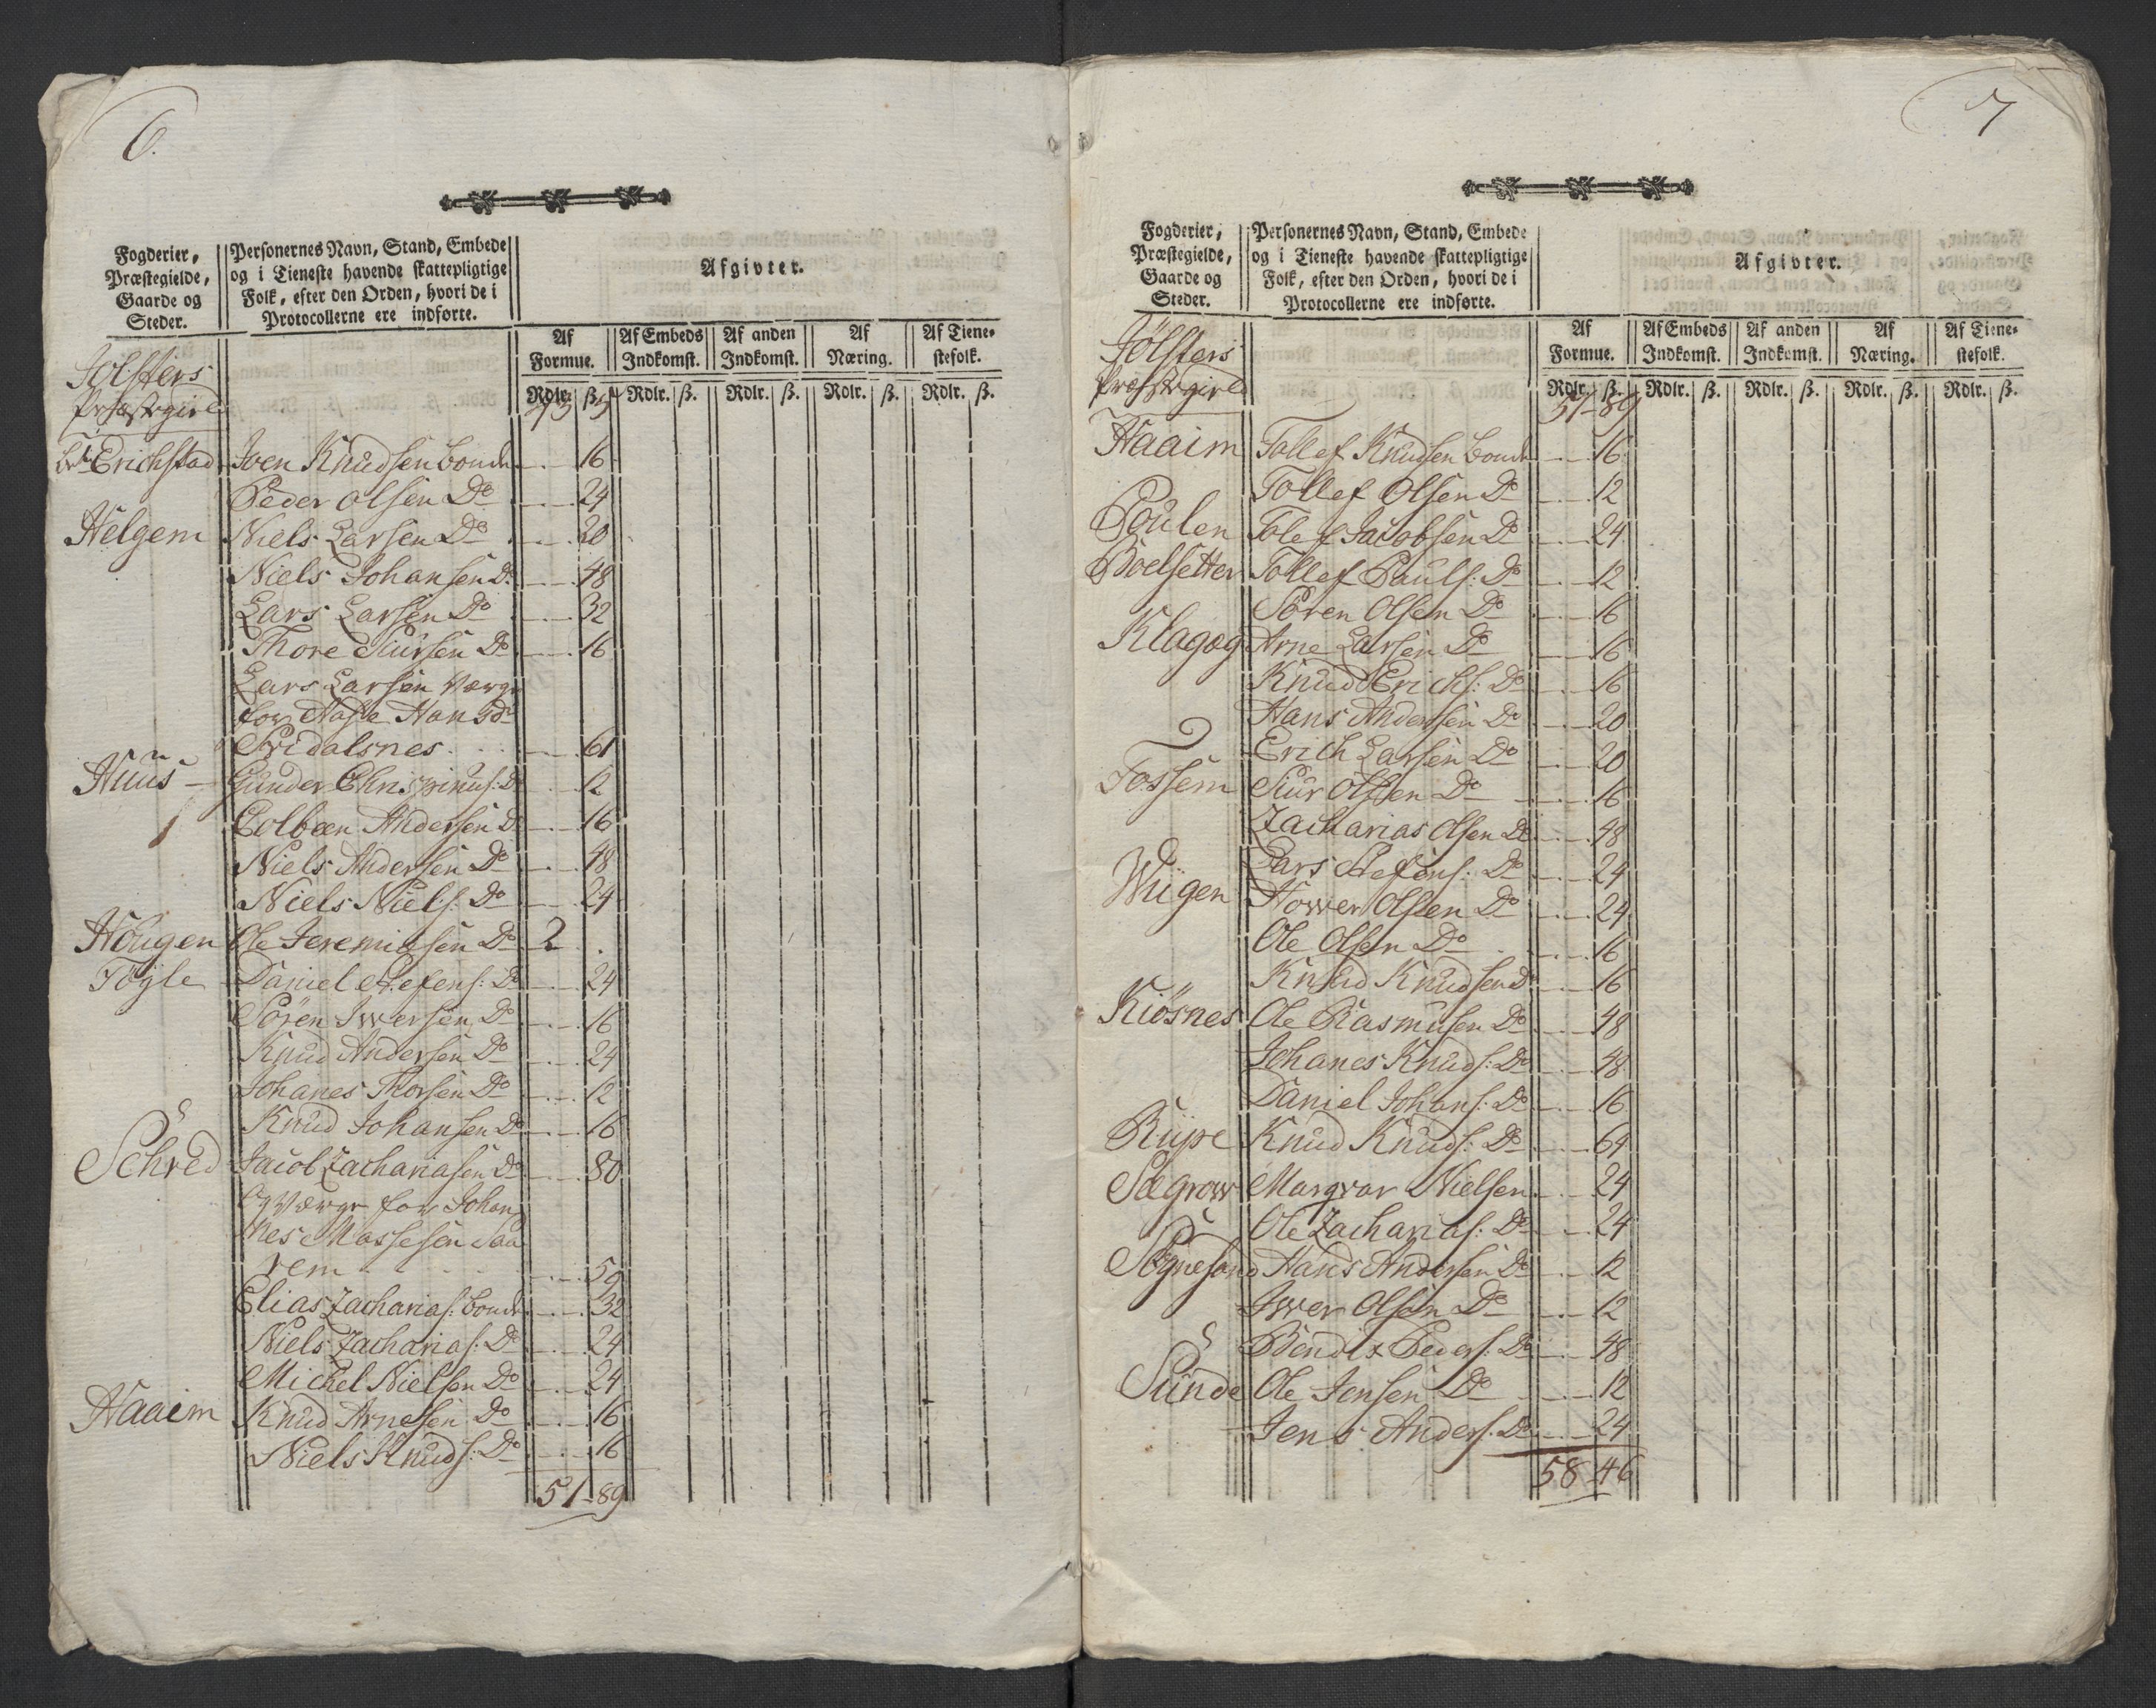 6.
Fogderier, Præstegielde, Gaarde og Steder.
Personernes Navn, Stand, Embede og i Tieneste havende skattepligtige Folk, efter den Orden, hvori de i Protocollerne ere indførte.
Afgivter.
Af Formue. Af Embeds Indkomst. Af anden Indkomst. Af Næring. Af Tienestefolk.
Rdlr. ß. Rdlr. ß. Rdlr. ß. Rdlr. ß. Rdlr. ß.
Jölsters
Præstegield
Erichstad Joen Knudsen bonde 16
Peder Olsen Do 24
Helgem Niels Larsen Do 20
Niels Johansen Do 48
Lars Larsen Do 32
Thore Siursen Do 16
Lars Larsen Værge
for Aase Hansdr
Svidalsnes 61
Huus Gunder Chrispinus: Do 12
Colbeen Andersen Do 16
Niels Andersen Do 48
Niels Niels: Do 24
Hougen Ole Jeremiæsen Do 2
Fögle Daniel Stefens: Do 24
Sören Iwersen Do 16
Knud Andersen Do 24
Johanes Thorsen Do 12
Knud Johansen Do 16
Schred Jacob Zachariasen Do 80
Og Værge for Johan
nes Massesen Saa
rem 59
Elias Zacharias: bonde 32
Niels Zacharias: Do 24
Michel Nielsen Do 24
Haaim Knud Arnesen Do 16
Niels Knuds: Do 16
51-89
7
Fogderier, Præstegielde, Gaarde og Steder.
Personernes Navn, Stand, Embede og i Tieneste havende skattepligtige Folk, efter den Orden, hvori de i Protocollerne ere indførte.
Afgivter.
Af Formue. Af Embeds Indkomst. Af anden Indkomst. Af Næring. Af Tienestefolk.
Rdlr. ß. Rdlr. ß. Rdlr. ß. Rdlr. ß. Rdlr. ß.
Jölsters
Præstegield
51-89
Haaim Tollef Knudsen bonde 16
Tollef Olsen Do 12
Soulen Tolef Jacobsen Do 24
Boelsetter Tollef Pauls: Do 12
Sören Olsen Do 16
Klageg Arne Larsen Do 16
Knud Erichs: Do 16
Hans Andersen Do 20
Erich Larsen Do 20
Fossem Siur Olsen Do 16
Zacharias Olsen Do 48
Lars Stefens: Do 24
Wiigen Hower Olsen Do 24
Ole Olsen Do 16
Knud Knudsen Do 16
Kiösnes Ole Rasmusen Do 48
Johanes Knuds: Do 48
Daniel Johans: Do 16
Riipe Knud Knuds: Do 64
Sægrow Margvar Nielsen 24
Ole Zacharias: Do 24
Sögnesand Hans Andersen Do 12
Iwer Olsen Do 12
Bendix Peders: Do 48
Sunde Ole Jensen Do 12
Jens Anders: Do 24
58 46